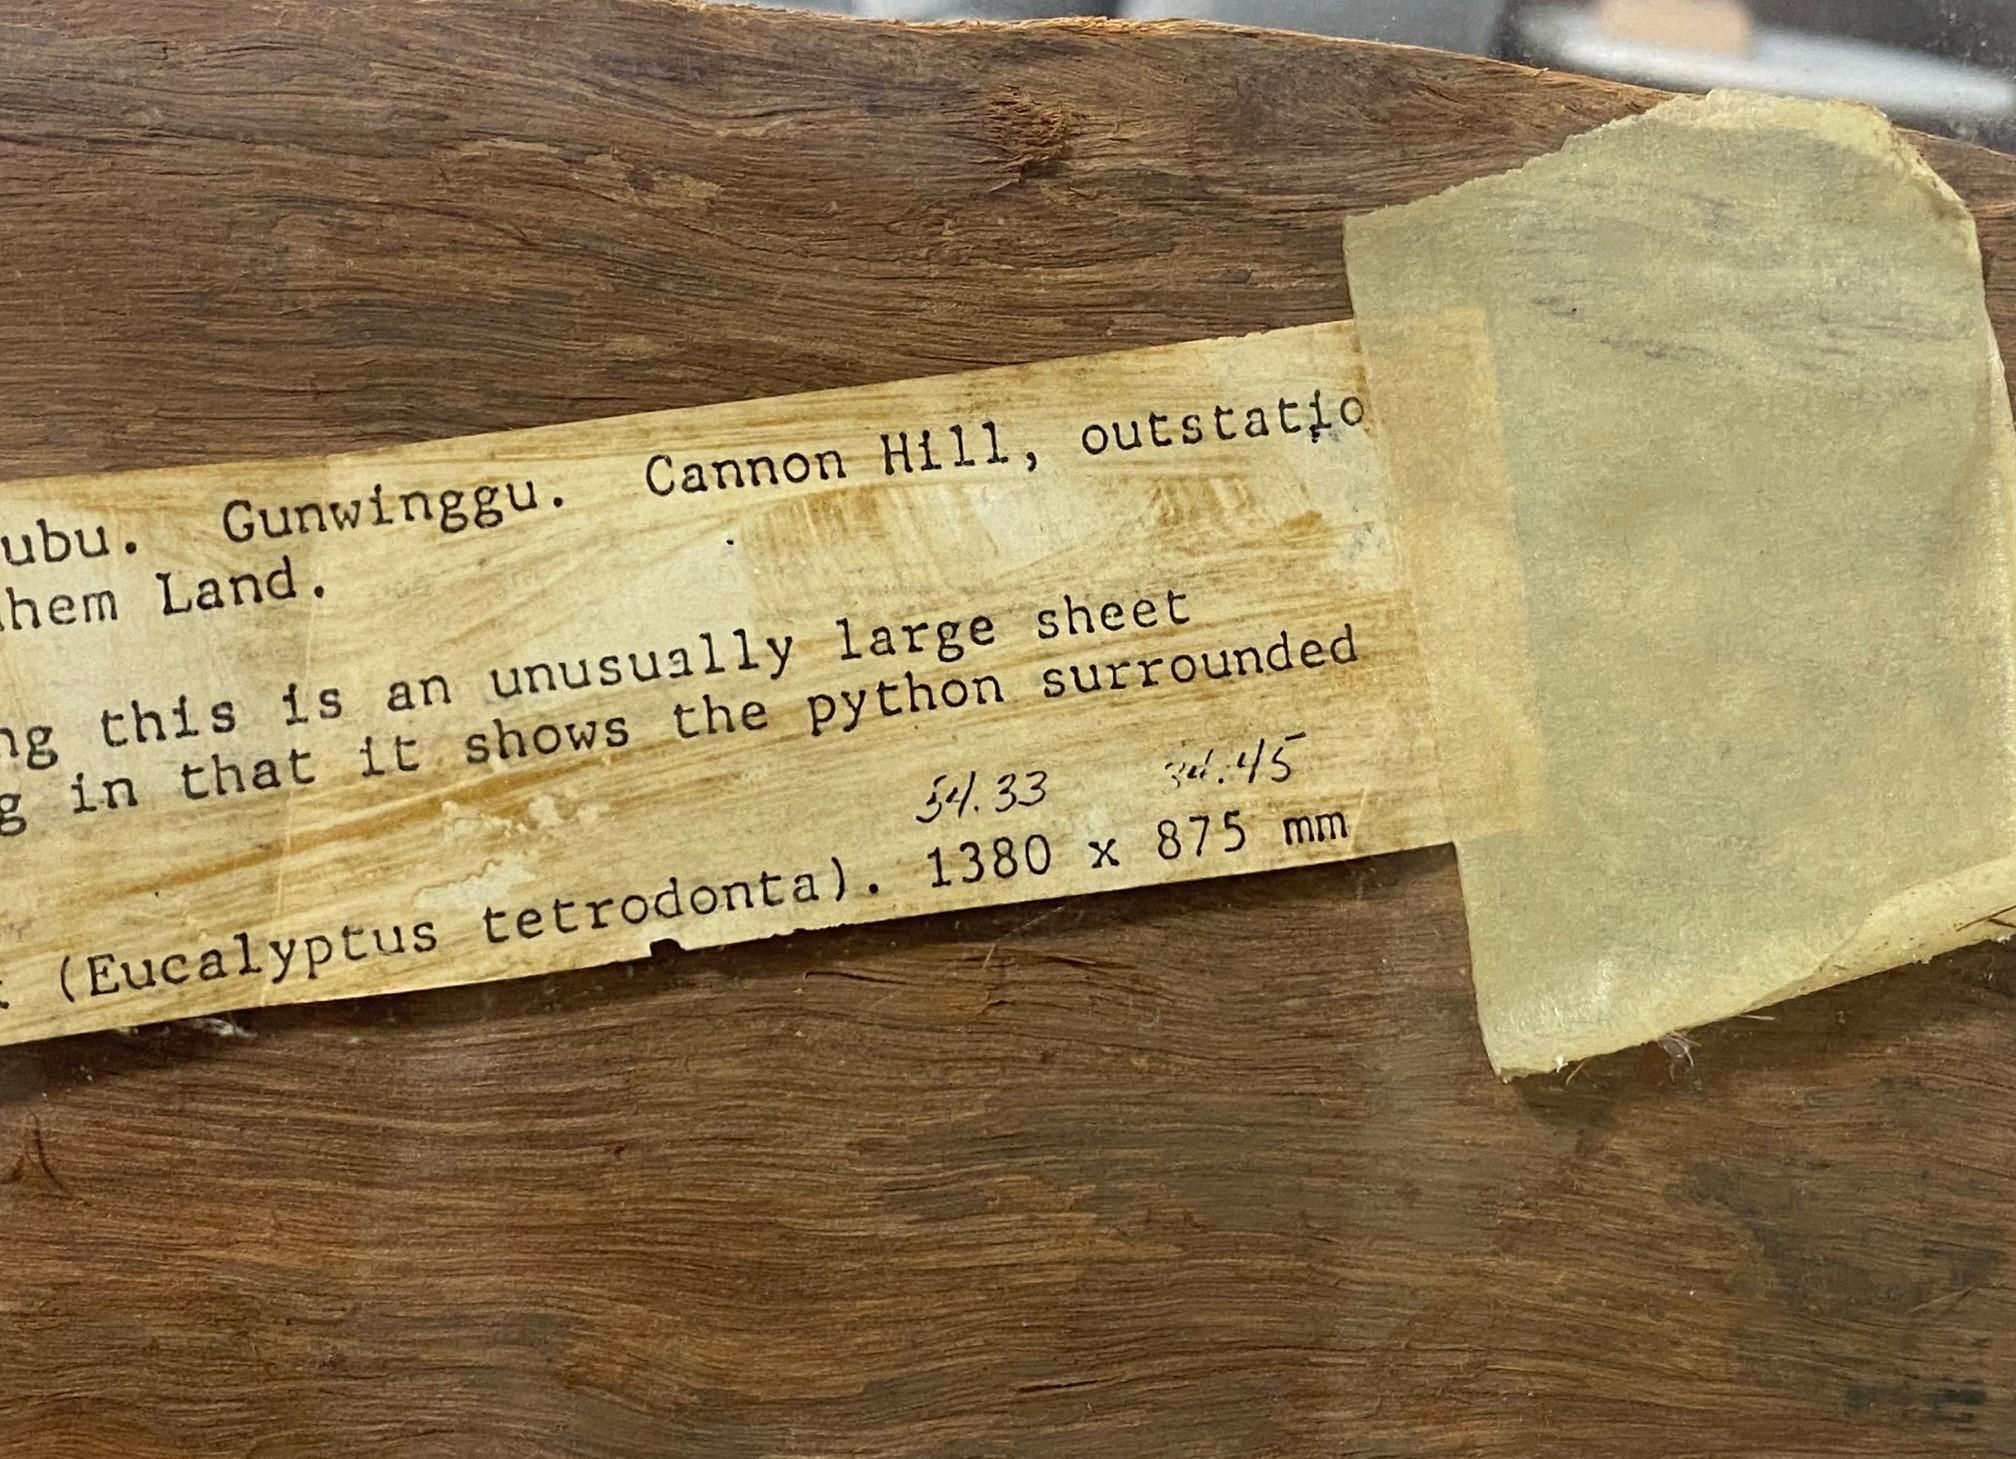 ubu. Gunwinggu. Cannon Hill, outstatio
hem Land.
ng this is an unusually large sheet
g in that it shows the python surrounded
54.33 34.45
(Eucalyptus tetrodonta). 1380 x 875 mm